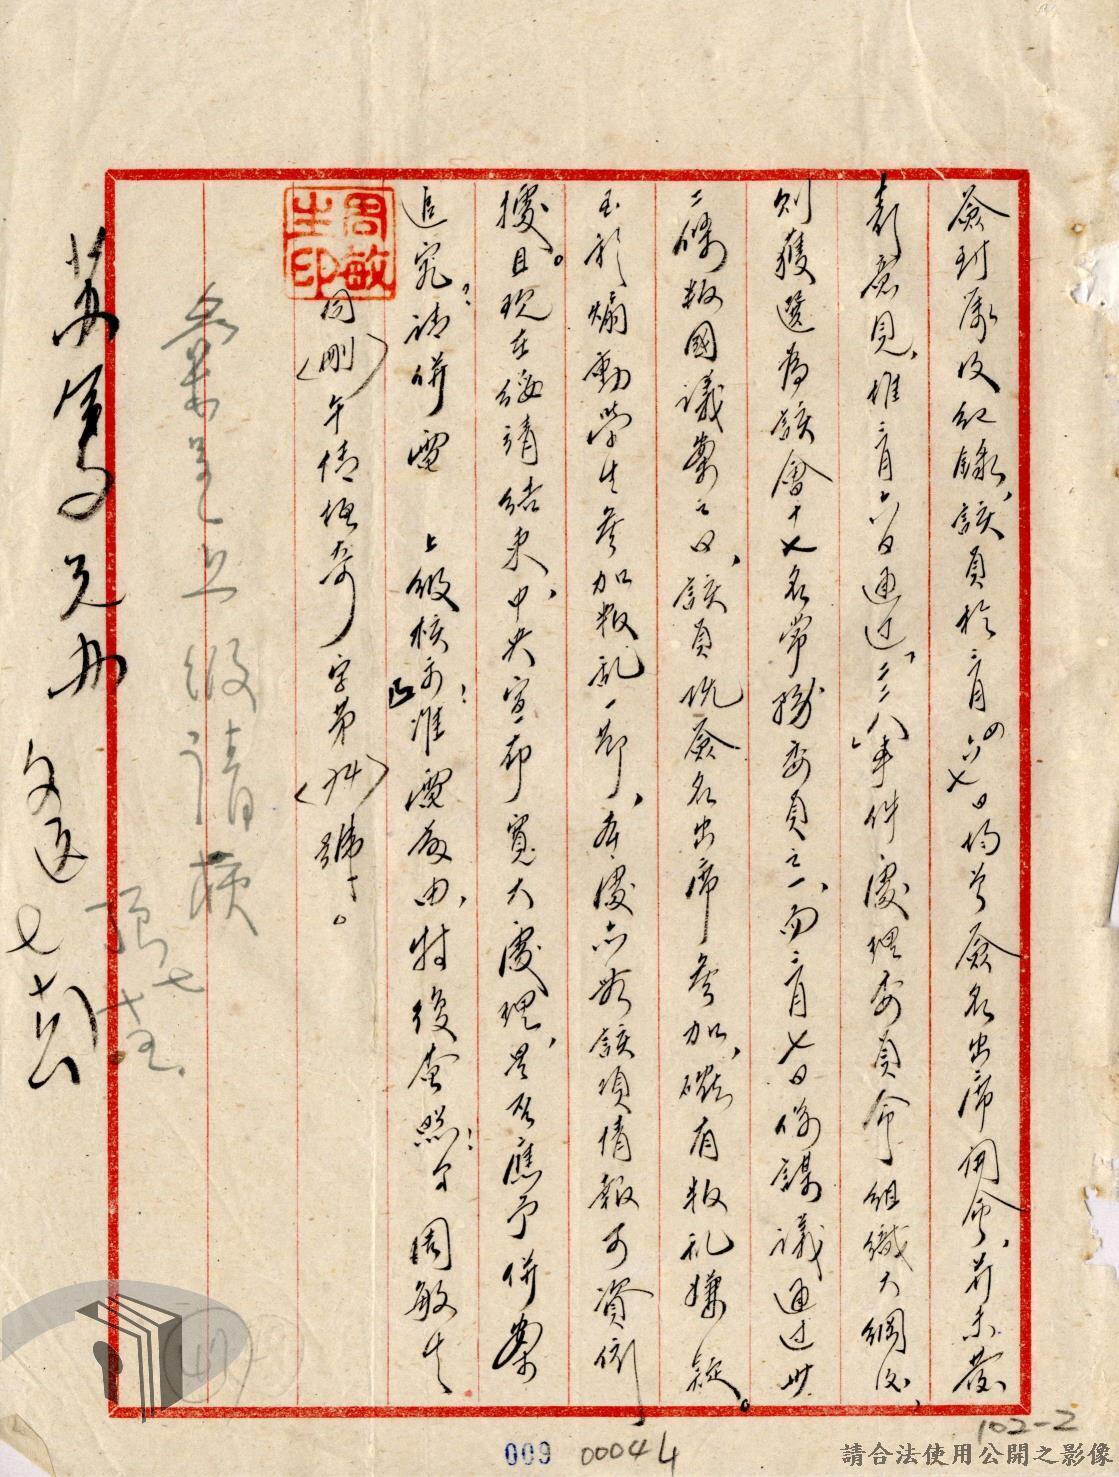 簽到及紀錄，該員於三月四六七日均曾簽名出席開會，并未發
表意見，惟三月六日通過二二八事件處理委員會組織大綱後，
則獲選為該會十七名常務委員之一，而三月七日係謀議通過卅
二條叛國議案之日，該員既簽名出席參加，礙有叛亂嫌疑。
至於煽動學生參加叛亂一節，本處亦無該項情報可資依
據。且現在綏靖結束，中央宣布寬大處理，是否應予併案
追究？請併電　上級核示；准電前由，特復查照；弟　周敏生
周敏生印
叩（剛）午情極奇字第（卅）號。
彙呈上級請核
七
文返七
009 00044
102-2
請合法使用公開之影像